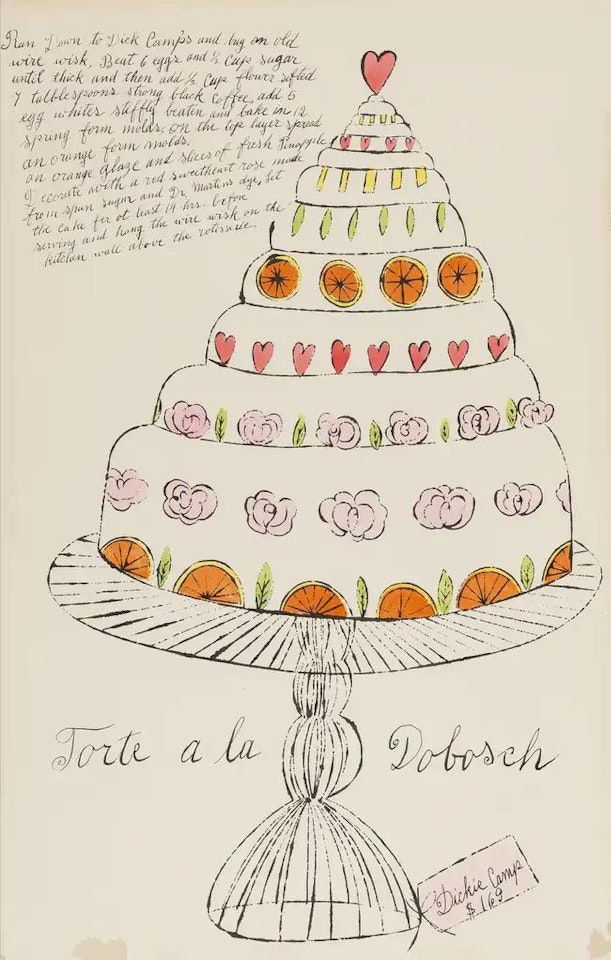 Run Down to Dick Camp's and buy an old
wire wisk, Beat 6 eggs and ½ Cup sugar
until thick and then add ½ Cup flower sifted
7 talblespoons strong black Coffee, add 5
egg whites stiffly beaten and bake in 12
spring form molds, on the top layer spread
an orange form molds.
an orange glaze and slices of fresh Pinapple
Decorate with a red sweetheart rose made
from spun sugar and Dr. Martins dye, Set
the cake for at least 14 hrs. before
serving and hang the wire wisk on the
kitchen wall above the rotisserie.
Torte a la Dobosch
Dickie Camp
$1.69